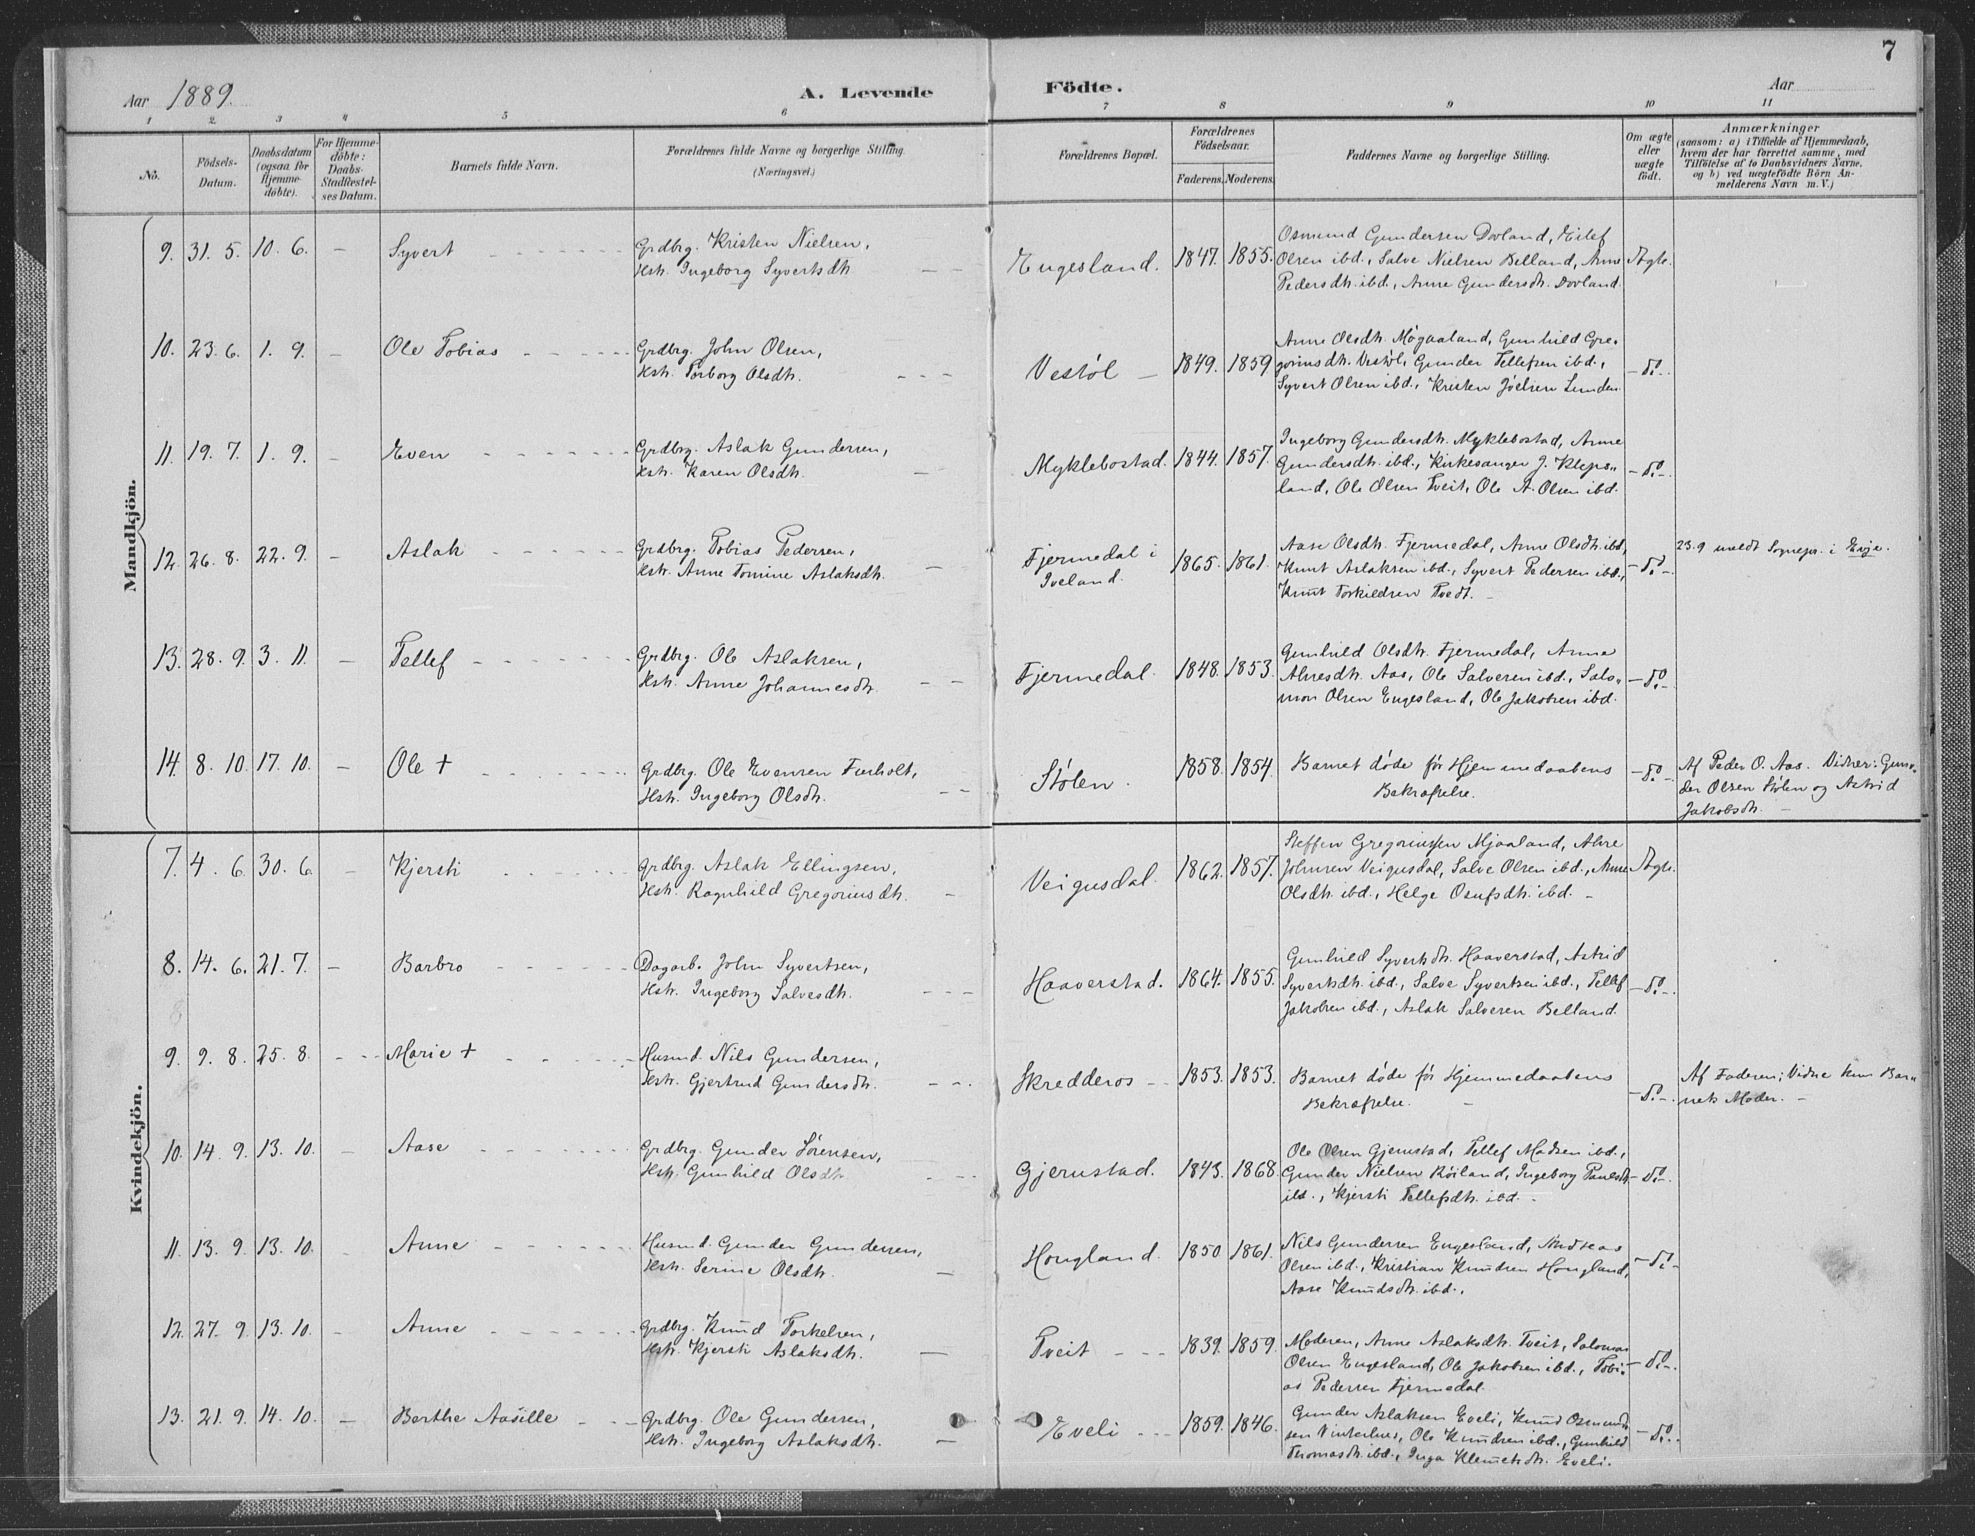 7
Aar 1889.
A. Levende Födte.
Aar
1 2. 3 4 5 6 7 8 9 10 11
No.
Födsels-Datum.
Daabsdatum (ogsaa for Hjemmedöbte).
For Hjemmedöbte: Daabs-Stadfæstelses Datum.
Barnets fulde Navn.
Forældrenes fulde Navne og borgerlige Stilling.
(Næringsvei.)
Forældrenes Bopæl.
Forældrenes Födselsaar.
Faderens. Moderens.
Faddernes Navne og borgerlige Stilling.
Om ægte eller uægte födt.
Anmærkninger
(saasom: a) i Tilfælde af Hjemmedaab,
hvem der har forrettet samme, med
Tilföielse af to Daabsvidners Navne,
og b) ved uægtefödte Börn Anmelderens Navn m. V.)
Mandkjön.
9. 31. 5. 10. 6. — Syvert
Grdbrg. Kristen Nielsen,
Hstr. Ingeborg Syvertsdtr.
Engesland. 1847. 1855.
Osmund Gundersen Dovland, Eilef
Olsen ibd., Salve Nielsen Belland, Anne
Pedersdtr. ibd., Anne Gundersdtr. Dovland.
Ægte.
10. 23. 6. 1. 9. — Ole Tobias
Grdbrg. John Olsen,
Hstr. Torborg Olsdtr.
Vestøl — 1849. 1859
Anne Olsdtr. Møgaaland, Gunhild Gre-
goriusdtr. Vestøl, Gunder Tellefsen ibd.,
Syvert Olsen ibd., Kristen Jøelsen Lunden
— do —
11. 19. 7. 1. 9. — Even
Grdbrg. Aslak Gundersen,
Hstr. Karen Olsdtr.
Myklebostad. 1844. 1857.
Ingeborg Gundersdtr. Myklebostad, Anne
Gundersdtr. ibd., Kirkesanger J. Kleps-
land, Ole Olsen Tveit, Ole A. Olsen ibd.
— do —
12. 26. 8. 22. 9. — Aslak
Grdbrg. Tobias Pedersen,
Hstr. Anne Tomine Aslaksdtr.
Fjermedal i
Iveland. 1865. 1861.
Aase Olsdtr. Fjermedal, Anne Olsdtr. ibd.,
Knut Aslaksen ibd., Syvert Pedersen ibd.,
Knut Torkildsen Tvedt. —
— do —
23.9 meldt Sognepr. i Evje.
13. 28. 9. 3. 11. — Tellef
Grdbrg. Ole Aslaksen,
Hstr. Anne Johannesdtr.
Fjermedal. 1848. 1853.
Gunhild Olsdtr. Fjermedal, Anne
Alvesdtr. Aas, Ole Salvesen ibd., Salo-
mon Olsen Engesland, Ole Jakobsen ibd.
— do —
14. 8. 10. 17. 10. — Ole +
Grdbrg. Ole Evensen Furholt,
Hstr. Ingeborg Olsdtr.
Stølen. 1858. 1854.
Barnet døde før Hjemmedaabens
Bekræftelse.
— do —
Af Peder O. Aas. Vidner: Gun-
der Olsen Stølen og Astrid
Jakobsdtr. —
Kvindekjön.
7. 4. 6. 30. 6. — Kjersti
Grdbrg. Aslak Ellingsen,
Hstr. Ragnhild Gregoriusdtr.
Veigusdal. 1862. 1857.
Steffen Gregoriussen Mjaaland, Alve
Johnsen Veigusdal, Salve Olsen ibd., Anne
Olsdtr. ibd., Helge Osufsdtr. ibd. —
Ægte.
8. 14. 6. 21. 7. — Barbro
Dagarb. John Syvertsen,
Hstr. Ingeborg Salvesdtr.
Haaverstad. 1864. 1855.
Gunhild Syvertsdtr. Haaverstad, Astrid
Syvertsdtr. ibd., Salve Syvertsen ibd., Tellef
Jakobsen ibd., Aslak Salvesen Belland.
— do —
9. 9. 8. 25. 8. — Marie +
Husmd. Nils Gundersen,
Hstr. Gjertrud Gundersdtr.
Skredderos — 1853. 1853.
Barnet døde før Hjemmedaabens
Bekræftelse. —
— do —
Af Faderen; Vidne kun Bar-
nets Moder. —
10. 14. 9. 13. 10. — Aase
Grdbrg. Gunder Sørensen,
Hstr. Gunhild Olsdtr.
Gjerustad. 1843. 1868.
Ole Olsen Gjerustad, Tellef Madsen ibd.,
Gunder Nielsen Røiland, Ingeborg Paulsdtr
ibd., Kjersti Tellefsdtr. ibd. —
— do —
11. 13. 9. 13. 10. — Anne
Husmd. Gunder Gundersen,
Hstr. Serine Olsdtr.
Hougland. 1850 1861.
Nils Gundersen Engesland, Andreas
Olsen ibd., Kristian Knudsen Hougland,
Aase Knudsdtr. ibd.,
— do —
12. 27. 9. 13. 10. — Anne
Grdbrg. Knud Torkelsen,
Hstr. Kjersti Aslaksdtr.
Tveit — 1839. 1859.
Moderen, Anne Aslaksdtr. Tveit, Salomon
Olsen Engesland, Ole Jakobsen ibd., Tobi-
as Pedersen Fjermedal.
— do —
13. 21. 9. 14. 10. — Berthe Aasille
Grdbrg. Ole Gundersen,
Hstr. Ingeborg Aslaksdtr.
Eveli — 1859. 1846.
Gunder Aslaksen Eveli, Knud Osmund-
sen Vinterlies, Ole Knudsen ibd., Gunhild
Thomasdtr. ibd., Inga Klemetsdtr. Eveli.
— do —